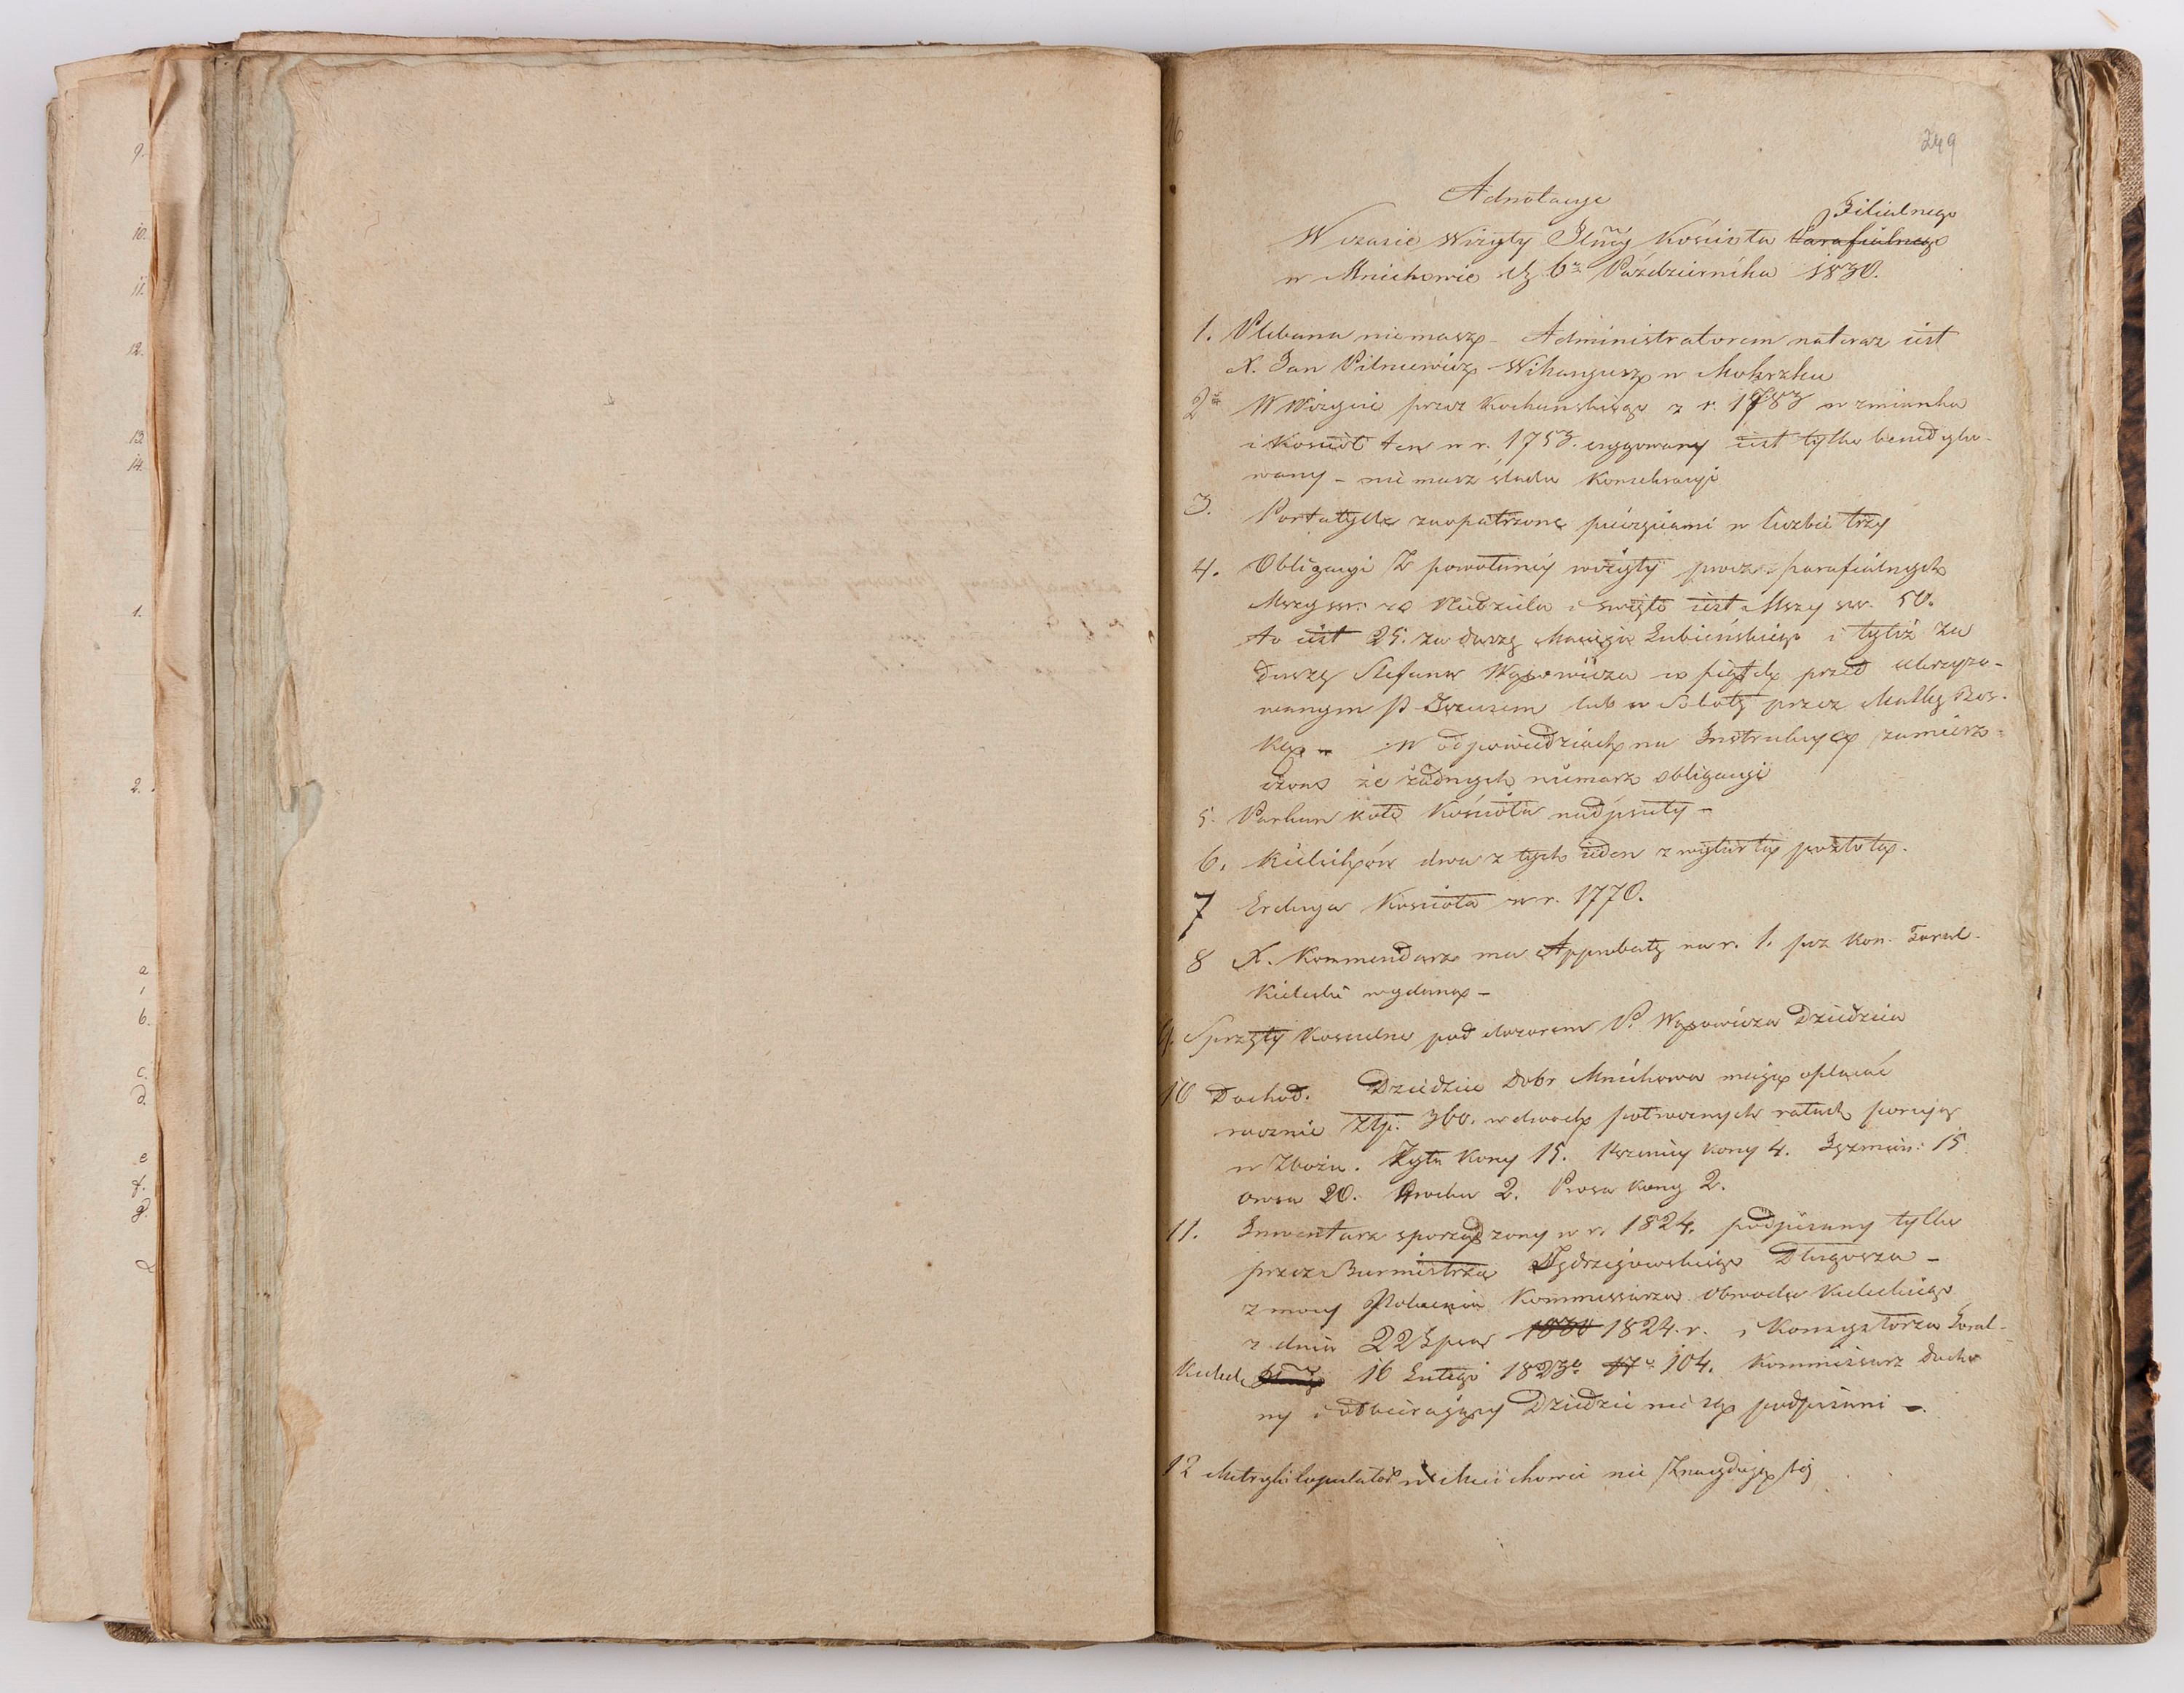 9.
10.
11.
12.
13.
14.
1.
2.
a
b.
c.
d.
e
f.
g.
16
249
Adnotacye
W czasie Wizyty Jlnéy Kościoła Parafialnego Filialnego
w Mnichowie d. 6 Października 1830.
1. Plebana niemasz – Administratorem na teraz iest
X. Jan Pilniewicz Wikaryusz w Mokrzku
2 W Wizycie przez Kochanskiego z r. 1783 wzmianka
i Kosciół ten w r. 1753. erygowany iest tylko benedyko-
wany – nie masz sladu Konsekracyi
3. Portatyle zaopatrzone pieczęciami w liczbie trzy
4. Obligacyi z powołaney wizyty procz parafialnych
Mszy ww. co Niedziela i swięto iest Mszy ww. 50.
to iest 25. za duszę Macieja Łubieńskiego i tyleż za
duszę Stefana Wąsowicza w piątek przed ukrzyżo-
wanym P. Jezusem lub w Sobotę przez Matkę Bos-
ką. – W odpowiedziach na Instrukcyą zamiesz-
czono że żadnych niemasz obligacyi
5. Parkan koło Kościoła nadpsuty –
6. Kielichów dwa z tych ieden z wytartą pozłotą.
7 Erekcya Kościoła w r. 1770.
8 X. Kommendarz ma Approbatę na r. 1. przez Kon. Jeneral-
Kielecki wydaną –
9. Sprzęty Koscielne pod dozorem P. Wąsowicza Dziedzica
10 Dochod. Dziedzice Dobr Mnichowa maią opłacać
rocznie Złp. 360. w dwoch połrocznych ratach
w Zbożu. Żyta Kopy 15. Pszenicy Kopy 4. Jęzmien: 15
owsa 20. Grochu 2. Prosa Kopy 2.
11. Inwentarz sporządzony w r. 1824. podpisany tylko
przez Burmistrza Jędrzejowskiego Długosza –
z mocy Polecenia Kommissarza Obwodu Kieleckiego
z dnia 22 Lipca 1830 1824. r. i Konsystorza Jeneral-
Kielec 16 Lutego 1823 17 104. Kommissarz Ducho
ny i odbieraiący Dziedzic nie są podpisani –.
12 Metryki Copulator w Mnichowie nie znayduią się